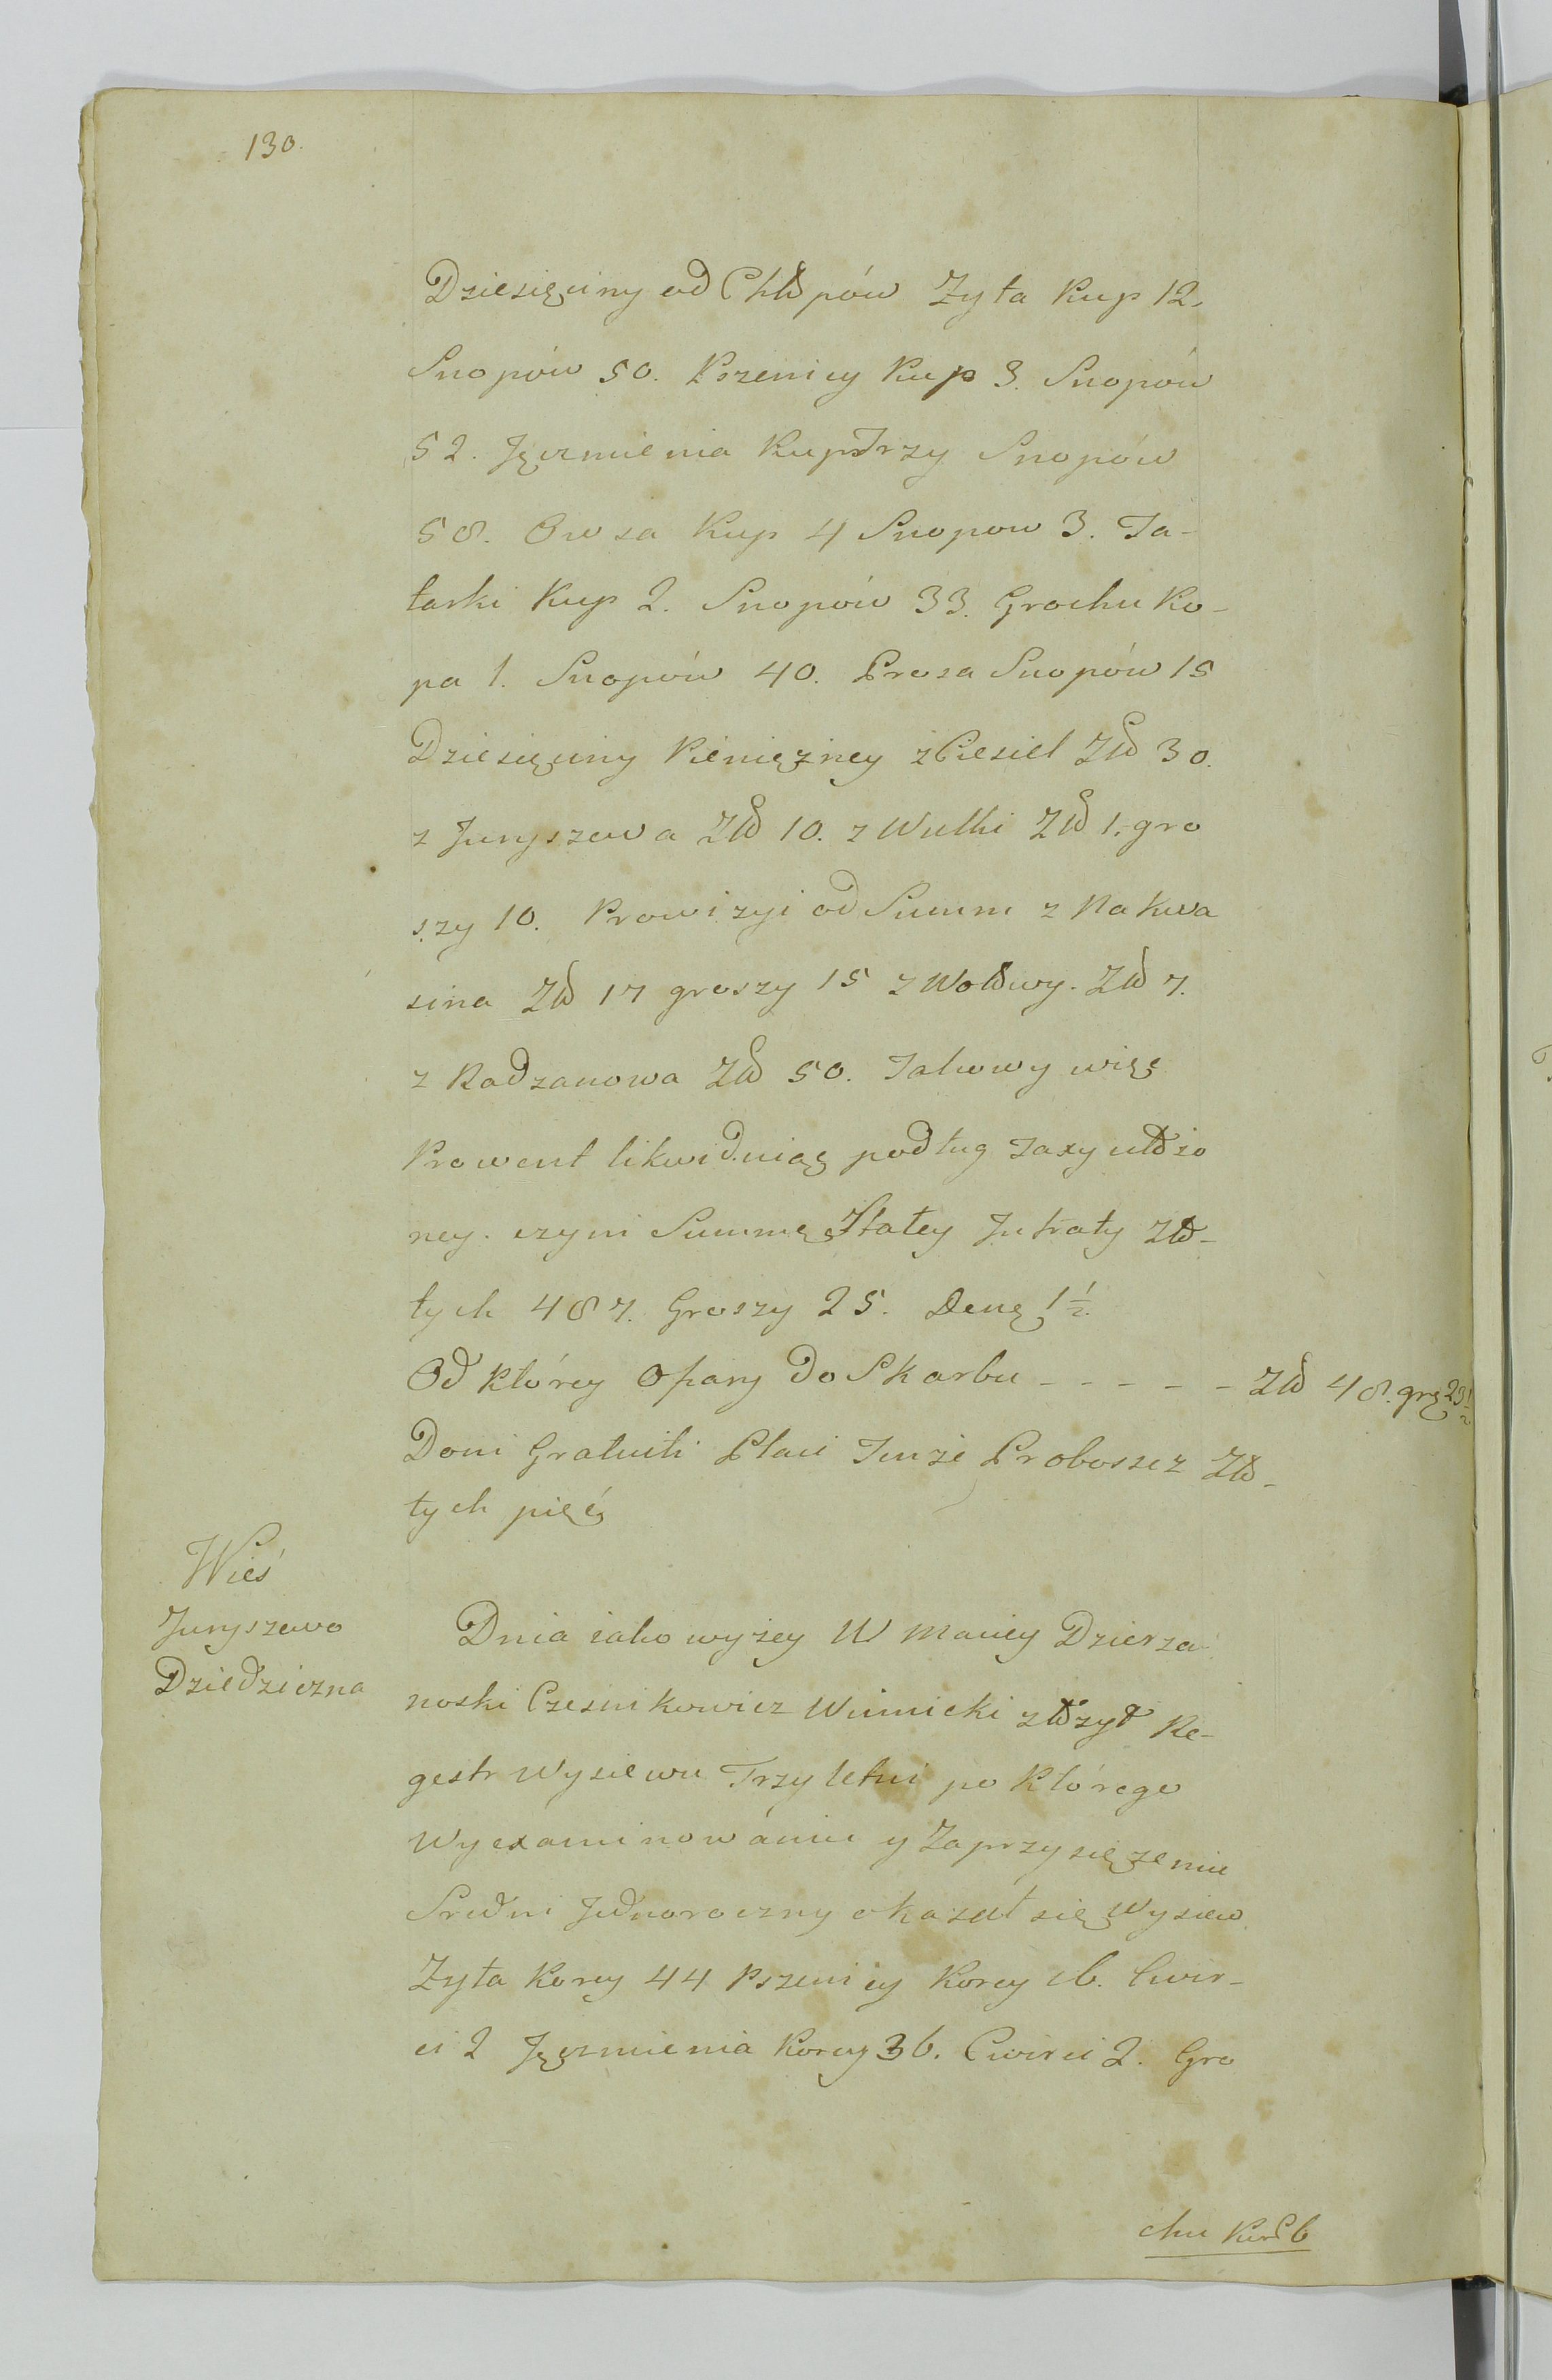 130.
Dziesięciny od Chłopów Zyta Kup 12.
Snopów 50. Pszenicy Kup 3. Snopów
52. Jęczmienia Kup Trzy Snopów
58. Owsa Kup 4 Snopow 3. Ta-
tarki Kup 2. Snopów 33. Grochu Ko-
pa 1. Snopów 40. Prosa Snopów 15
Dziesięciny Pieniężney z Ciesiel Zło 30.
z Juryszewa Zło 10. z Wulki Zło 1. gro
szy 10. Prowizyi od Summ z Nakwa
sina Zło 17 groszy 15 z Wołowy. Zło 7.
z Radzanowa Zło 50. Takowy więc
Prowent likwiduiąc podług Taxy ułożo
ney. czyni Summę Stałey Jntraty Zło-
tych 487. Groszy 25. Deng 1 1/2.
Od którey Ofiary do Skarbu - - - - - Zło 48. grę 23 1/2
Doni Gratuiti Płaci Tenże Proboszcz Zło-
tych pięć
Wieś
Juryszewo
Dziedziczna
Dnia iako wyżey W Maciey Dzierza-
noski Czesnikowicz Winnicki złożył Re-
gestr Wysiewu Trzyletni po którego
Wyexaminowániu y Zaprzysiężeniu
Sredni Jednoroczny okazał się Wysiew
Zyta Korcy 44 Pszenicy Korcy 16. Cwier-
ci 2 Jęczmienia Korcy 36. Cwierci 2. Gro
chu Kor 6